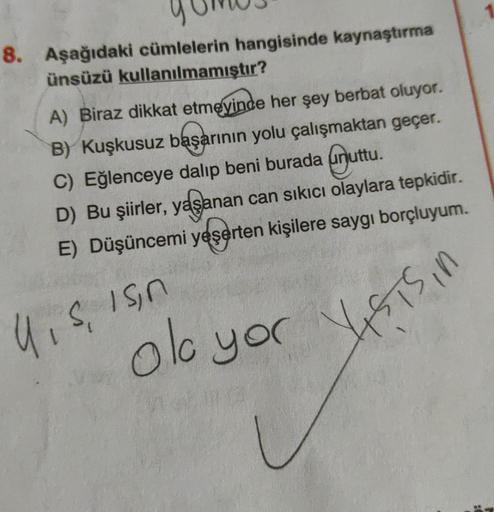 8. Aşağıdaki cümlelerin hangisinde kaynaştırma
ünsüzü kullanılmamıştır?
A) Biraz dikkat etmeyince her şey berbat oluyor.
B) Kuşkusuz başarının yolu çalışmaktan geçer.
C) Eğlenceye dalıp beni burada unuttu.
D) Bu şiirler, yaşanan can sıkıcı olaylara tepkidir.
E) Düşüncemi yeşerten kişilere saygı borçluyum.
olayor